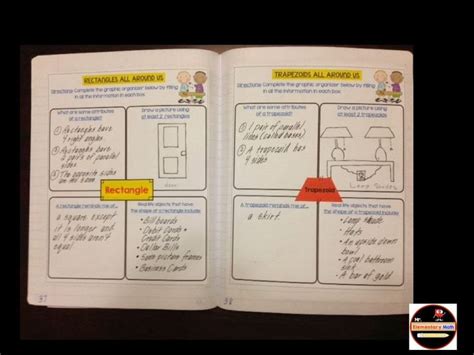 RECTANGLES ALL AROUND US
Directions: Complete the graphic organizer below by filling
in all the information in each box.
What are some attributes
of a rectangle?
① Rectangles have
4 right angles.
② Rectangles have
2 pairs of parallel
sides.
③ The opposite sides
are the same
Draw a picture using
at least 2 rectangles.
Door
Rectangle
A rectangle reminds me of...
a square except
it is longer and
all 4 sides aren't
equal.
Real life objects that have
the shape of a rectangle include:
• Bill boards
• Debit Cards
• Credit Cards
• Dollar Bills
• Some picture frames
• Business Cards
37
TRAPEZOIDS ALL AROUND US
Directions: Complete the graphic organizer below by filling
in all the information in each box.
What are some attributes
of a trapezoid?
① 1 pair of parallel
lines (called bases)
② A trapezoid has
4 sides
Draw a picture using
at least 2 trapezoids.
Lamp Shades
Trapezoid
A trapezoid reminds me of...
a skirt.
Real life objects that have
the shape of a trapezoid include:
• Lamp shade
• Hats
• An upside down
bowl
• A cool bathroom
sink
• A bar of gold
38
Mr.
Elementary Math